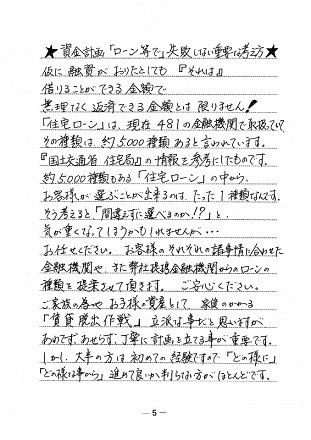 ★資金計画「ローン等で」失敗しない重要な考え方★
仮に融資がおりたとしても『それは』
借りることができる金額で
無理なく返済できる金額とは限りません！
「住宅ローン」は、現在481の金融機関で取扱っていて
その種類は、約5,000種類あると言われています。
『国土交通省 住宅局』の情報を参考にしたものです。
約5,000種類もある「住宅ローン」の中から、
お客様が選ぶことが出来るのは、たった1種類なんです。
そう考えると、「間違えずに選べるのか!?」と
気が重くなってしまうかもしれませんが…
お任せください。お客様のそれぞれの諸事情に合わせた
金融機関や、また弊社提携金融機関からのローンの
種類を提案させて頂きます。ご安心ください。
ご家族の為やお子様の資産として、家賃のかかる
「賃貸脱出作戦」立派な事だと思いますが
あわてず、あせらず、丁寧に計画を立てる事が重要です。
しかし、大半の方は初めての経験ですので「どの様に」
「どの様な事から」進めて良いか判らない方がほとんどです。
－5－